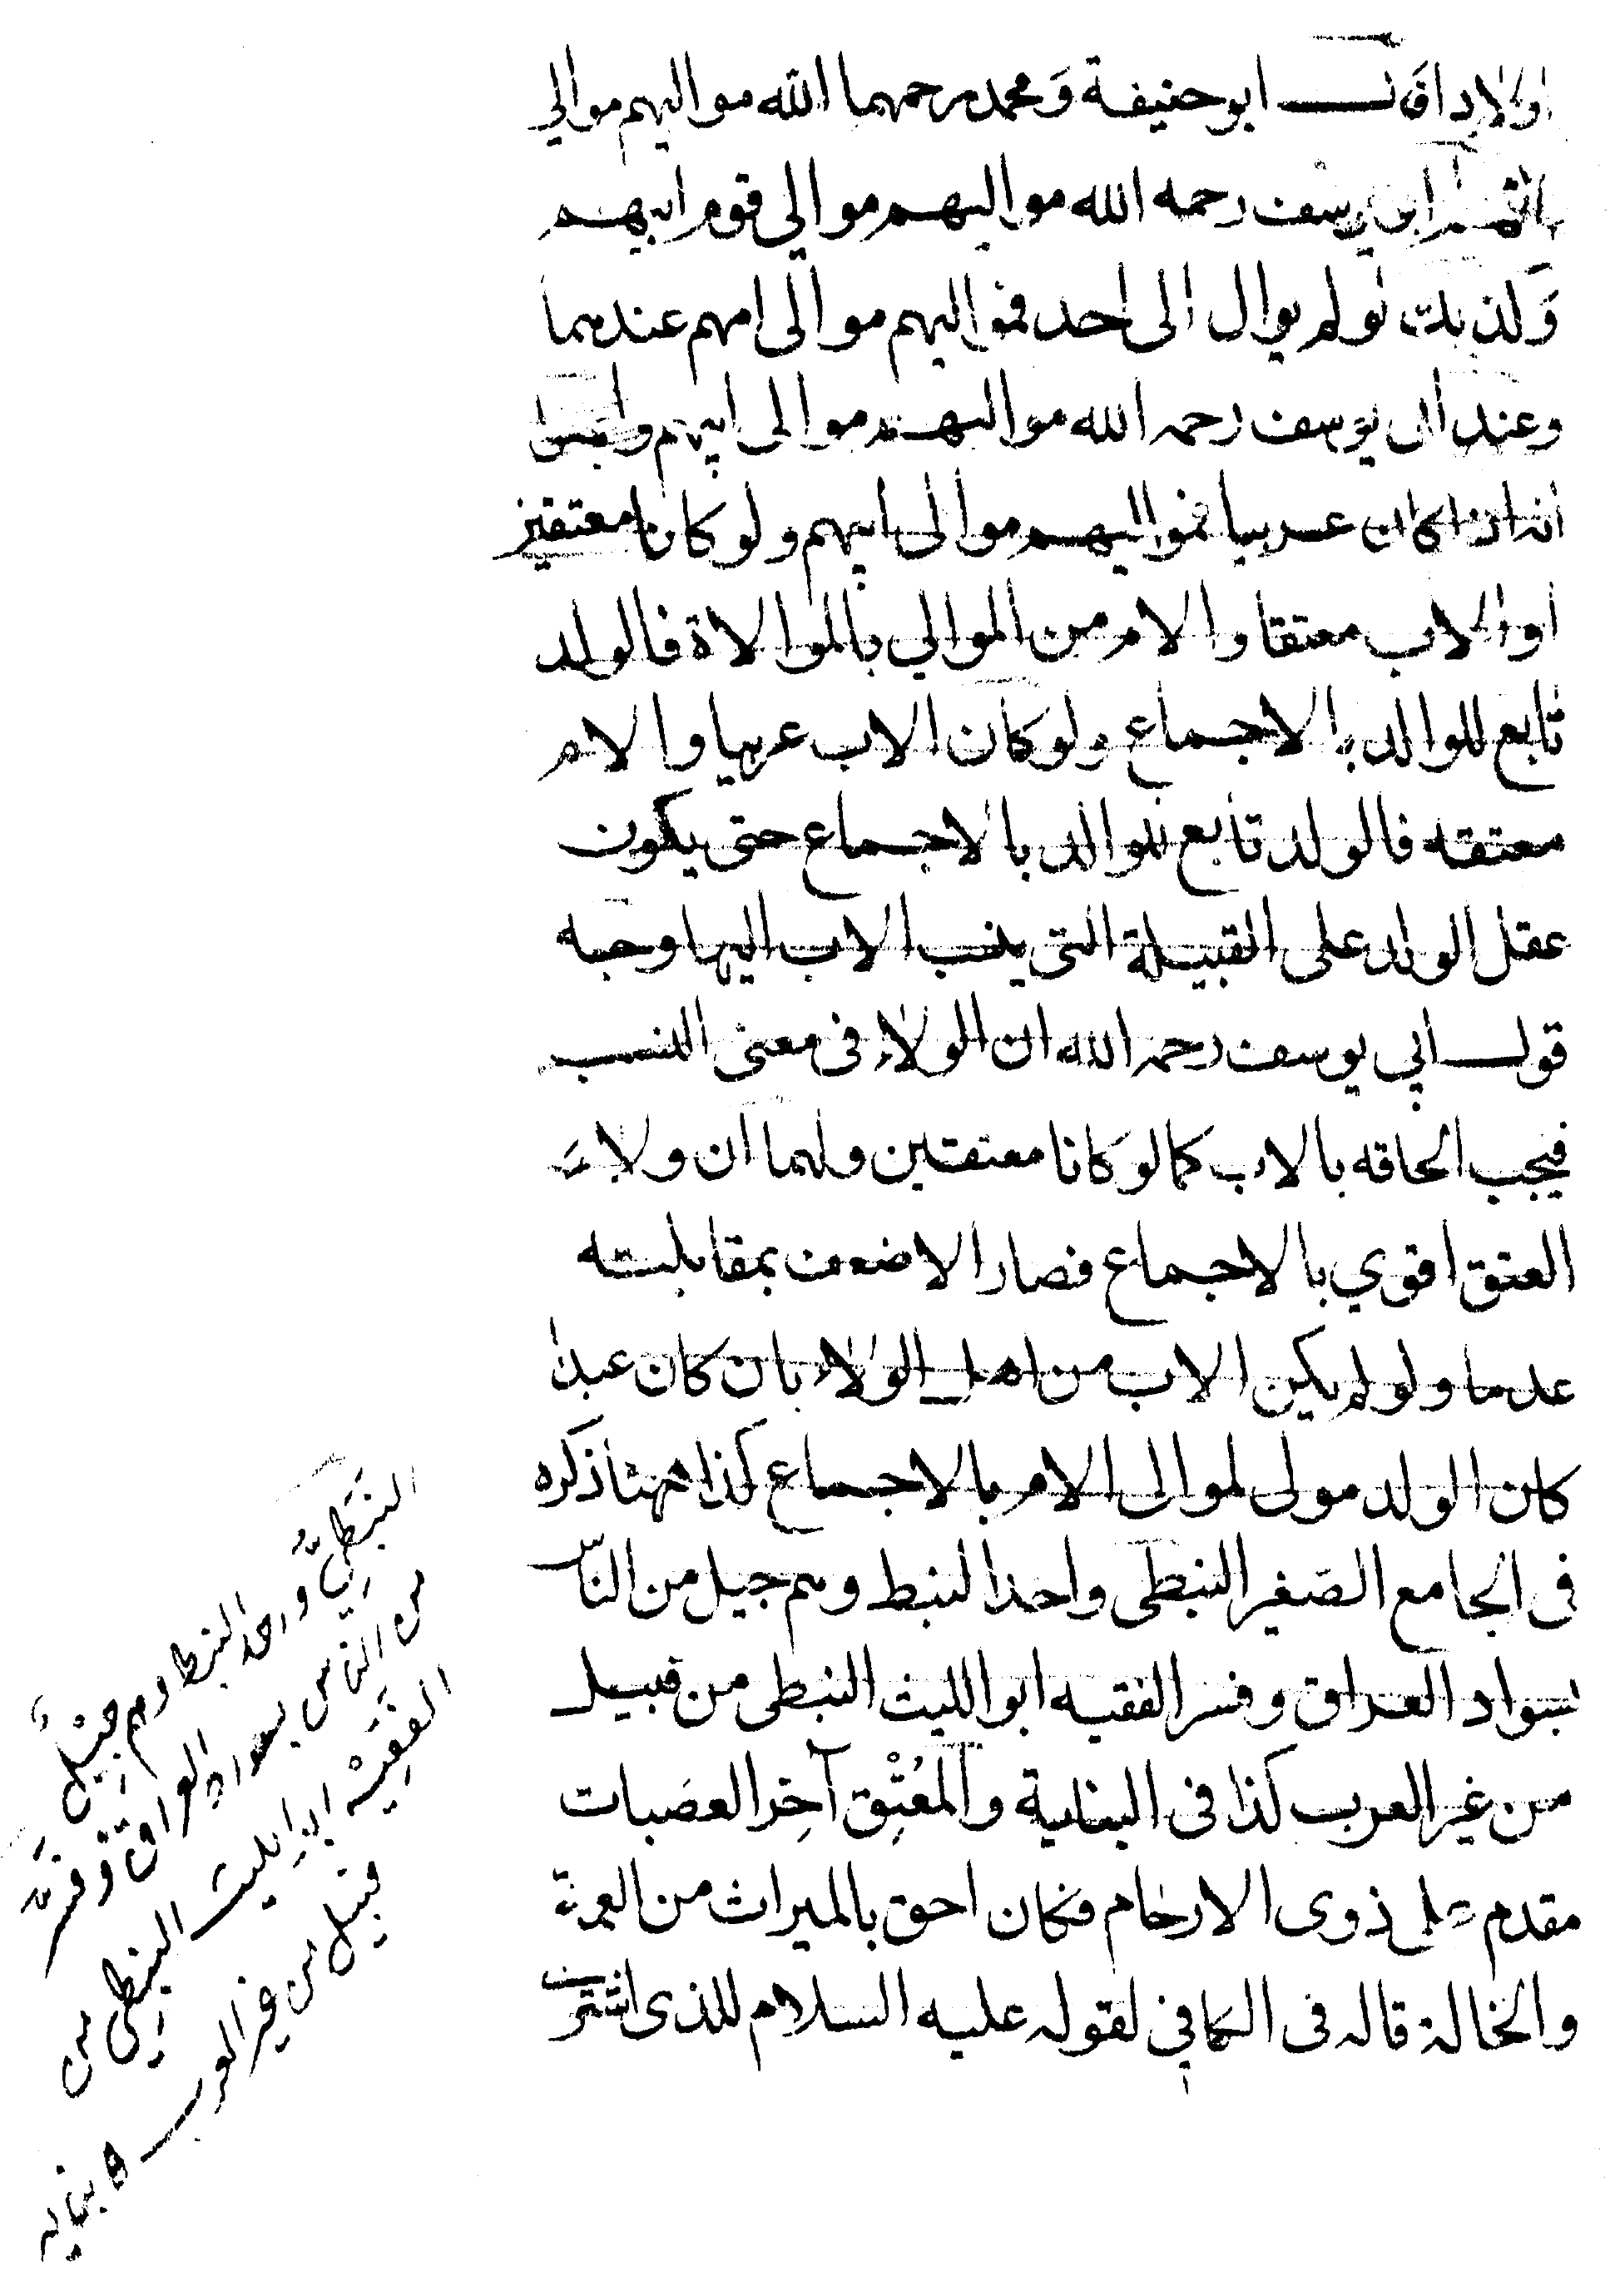 اولادا قال ابو حنيفة وَمحمد رحمهما الله مواليهم موالي
امهم ابي يوسف رحمه الله مواليهم موالي قوم ابيهم
وَلذلك لو لم يوال الى احد فمواليهم موالى امهم عندهما
وعند ابى يوسف رحمه الله مواليهم موالى ابيهم
انه اذا كان عربيا فمواليهم موالى ابيهم ولو كانا معتقين
او الاب معتقا والام من الموالي بالموالاة فالولد
تابع للوالد بالاجماع ولو كان الاب عربيا والام
معتقه فالولد تابع للوالد بالاجماع حتى يكون
عقل الولد على القبيلة التى ينسب الاب اليها وجه
قول أبي يوسف رحمه الله ان الولاء فى معنى النسب
فيجب الحاقه بالاب كما لو كانا معتقين ولهما ان ولاء
العتق اقوي بالاجماع فصار الاضعف بمقابلته
عدما ولو لم يكن الاب من اهل الولاء بان كان عبدا
كان الولد مولى لموالى الام بالاجماع كذا ههنا ذكره
فى الجامع الصغير النبطى واحد النبط وهم جيل من الناس
بسواد العراق وفسر الفقيه ابو الليث النبطى من قبيل
من غير العرب كذا فى البناية والمُعْتِق آخِر العصَبات
مقدم على ذوى الارحام فكان احق بالميراث من العمة
والخالة قاله فى الكافي لقوله عليه السلام للذى اشترى
النبَطِيُّ واحد النبط وهم جِيْلٌ
من الناس بسواد العراق وَفسَّره
الفَقِيْه ابو الليث النبطِي من
قبيل من غير العرب ه بنايه